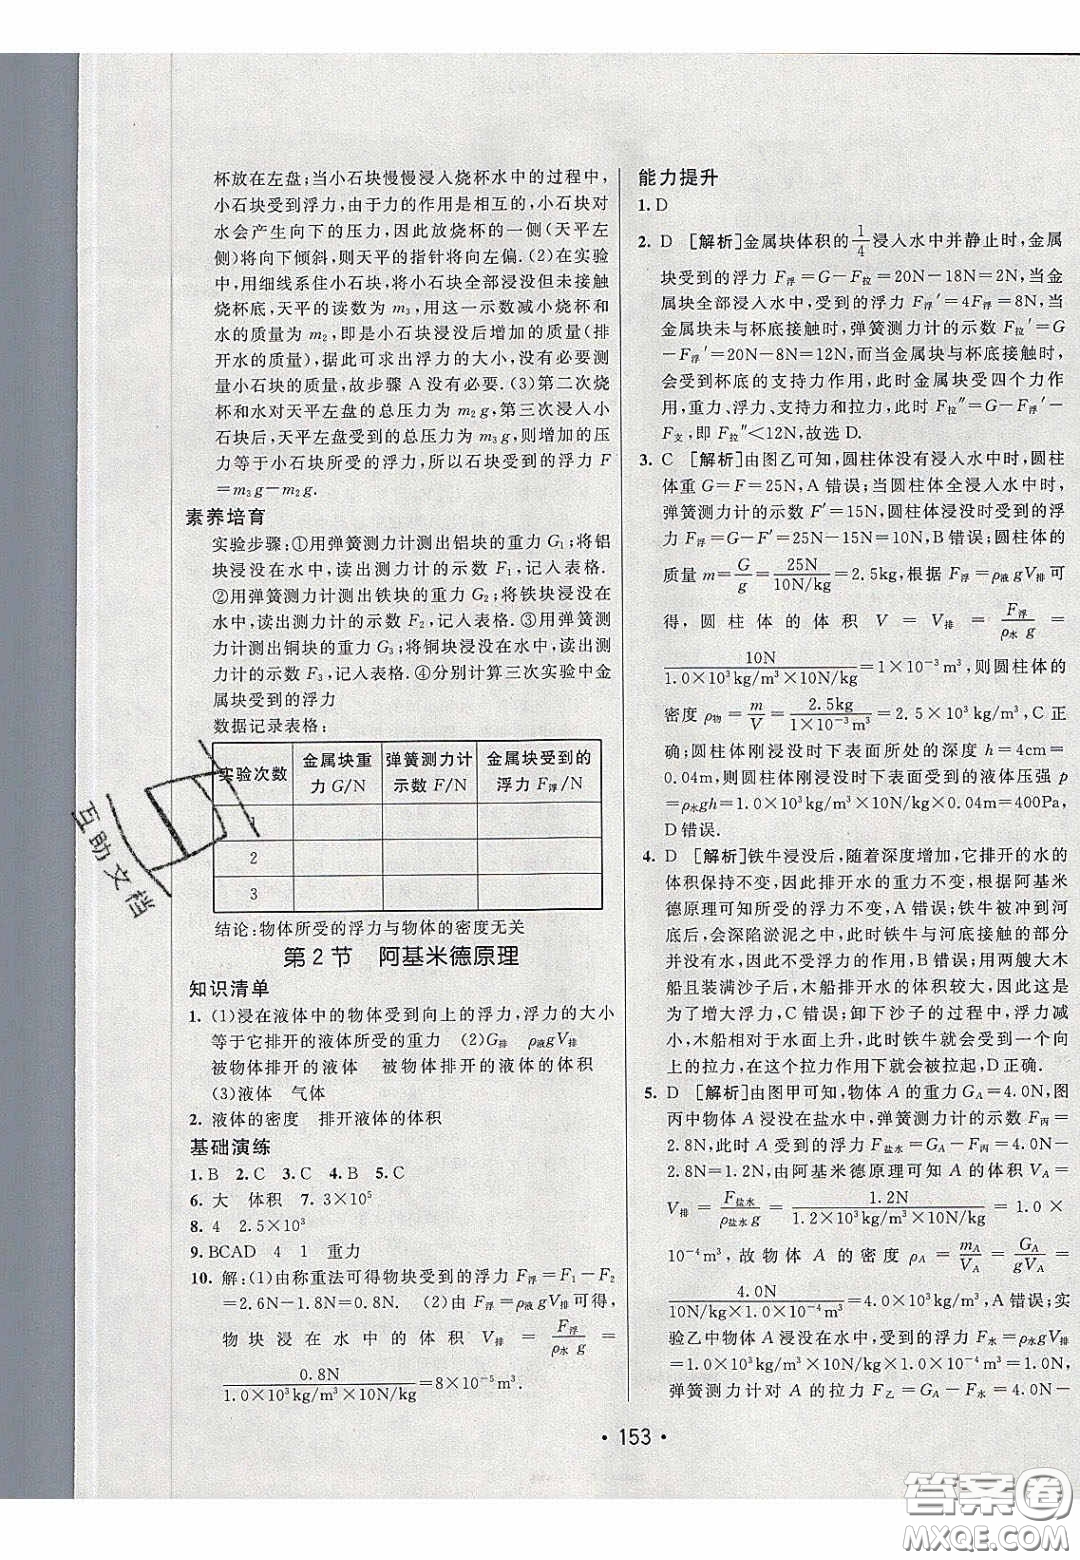 杯放在左盘;当小石块慢慢浸入烧杯水中的过程中,
小石块受到浮力,由于力的作用是相互的,小石块对
水会产生向下的压力,因此放烧杯的一侧(天平左
侧)将向下倾斜,则天平的指针将向左偏.(2)在实验
中,用细线系住小石块,将小石块全部浸没但未接触
烧杯底,天平的读数为m₃,用这一示数减小烧杯和
水的质量为m₂,即是小石块浸没后增加的质量(排
开水的质量),据此可求出浮力的大小,没有必要测
量小石块的质量,故步骤 A 没有必要.(3)第二次烧
杯和水对天平左盘的总压力为m₂g,第三次浸入小
石块后,天平左盘受到的总压力为m₃g,则增加的压
力等于小石块所受的浮力,所以石块受到的浮力 F
=m₃g-m₂g.
素养培育
实验步骤:①用弹簧测力计测出铝块的重力G₁;将铝
块浸没在水中,读出测力计的示数F₁,记入表格.
②用弹簧测力计测出铁块的重力G₂;将铁块浸没在
水中,读出测力计的示数F₂,记入表格.③用弹簧测
力计测出铜块的重力G₃;将铜块浸没在水中,读出测
力计的示数F₃,记入表格.④分别计算三次实验中金
属块受到的浮力
数据记录表格:
实验次数 金属块重力 G/N 弹簧测力计示数 F/N 金属块受到的浮力 F浮/N
1
2
3
结论:物体所受的浮力与物体的密度无关
第 2 节 阿基米德原理
知识清单
1. (1)浸在液体中的物体受到向上的浮力,浮力的大小
等于它排开的液体所受的重力 (2)G排 ρ液gV排
被物体排开的液体 被物体排开的液体的体积
(3)液体 气体
2. 液体的密度 排开液体的体积
基础演练
1. B 2. C 3. C 4. B 5. C
6. 大 体积 7. 3×10⁵
8. 4 2.5×10³
9. BCAD 4 1 重力
10. 解:(1)由称重法可得物块受到的浮力 F浮=F₁-F₂
=2.6N-1.8N=0.8N. (2)由 F浮=ρ液gV排可得,
物块浸在水中的体积 V排 = F浮/ρ水g =
0.8N/1.0×10³kg/m³×10N/kg=8×10⁻⁵m³.
能力提升
1. D
2. D [解析]金属块体积的1/4浸入水中并静止时,金属
块受到的浮力 F浮=G-F拉=20N-18N=2N,当金
属块全部浸入水中,受到的浮力 F浮′=4F浮=8N,当
金属块未与杯底接触时,弹簧测力计的示数 F拉′=G
-F浮′=20N-8N=12N,而当金属块与杯底接触时,
会受到杯底的支持力作用,此时金属块受四个力作
用,重力、浮力、支持力和拉力,此时 F拉″=G-F浮′-
F支,即 F拉″<12N,故选 D.
3. C [解析]由图乙可知,圆柱体没有浸入水中时,圆柱
体重 G=F=25N,A 错误;当圆柱体全浸入水中时,
弹簧测力计的示数 F′=15N,圆柱体浸没时受到的浮
力 F浮=G-F′=25N-15N=10N,B 错误;圆柱体的
质量 m=G/g=25N/10N/kg=2.5kg,根据 F浮=ρ液gV排可
得,圆柱体的体积 V = V排 = F浮/ρ水g =
10N/1.0×10³kg/m³×10N/kg=1×10⁻³m³,则圆柱体的
密度 ρ物=m/V=2.5kg/1×10⁻³m³=2.5×10³kg/m³,C 正
确;圆柱体刚浸没时下表面所处的深度 h=4cm=
0.04m,则圆柱体刚浸没时下表面受到的液体压强 p
=ρ水gh=1.0×10³kg/m³×10N/kg×0.04m=400Pa,
D 错误.
4. D [解析]铁牛浸没后,随着深度增加,它排开的水的
体积保持不变,因此排开水的重力不变,根据阿基米
德原理可知所受的浮力不变,A 错误;铁牛被冲到河
底,会深陷淤泥之中,铁牛与河底接触的部分
并没有水,不受浮力的作用,B 错误;用两艘大木
船且装满沙子,木船排开水的体积较大,因此这是
为了增大浮力,C 错误;卸下沙子的过程中,浮力减
小,木船相对于水面上升,此时铁牛就会受到一个向
上的拉力,在这个拉力作用下就会被拉起,D 正确.
5. D [解析]由图甲可知,物体 A 的重力 G_A=4.0N,图
丙中物体 A 浸没在盐水中,弹簧测力计的示数 F丙
=2.8N,此时 A 受到的浮力 F盐水=G_A-F丙=4.0N-
2.8N=1.2N,由阿基米德原理可知 A 的体积 V_A=
V排 = F盐水/ρ盐水g = 1.2N/1.2×10³kg/m³×10N/kg = 1.0 ×
10⁻⁴m³,故物体 A 的密度 ρ_A = m_A/V_A = G_A/gV_A =
4.0N/10N/kg×1.0×10⁻⁴m³=4.0×10³kg/m³,A 错误;实
验乙中物体 A 浸没在水中,受到的浮力 F水=ρ水gV排
=1.0×10³kg/m³×10N/kg×1.0×10⁻⁴m³=1.0N,
弹簧测力计对 A 的拉力 F乙=G_A-F水=4.0N-
· 153 ·
互助文档
答案圈
MXQE.COM